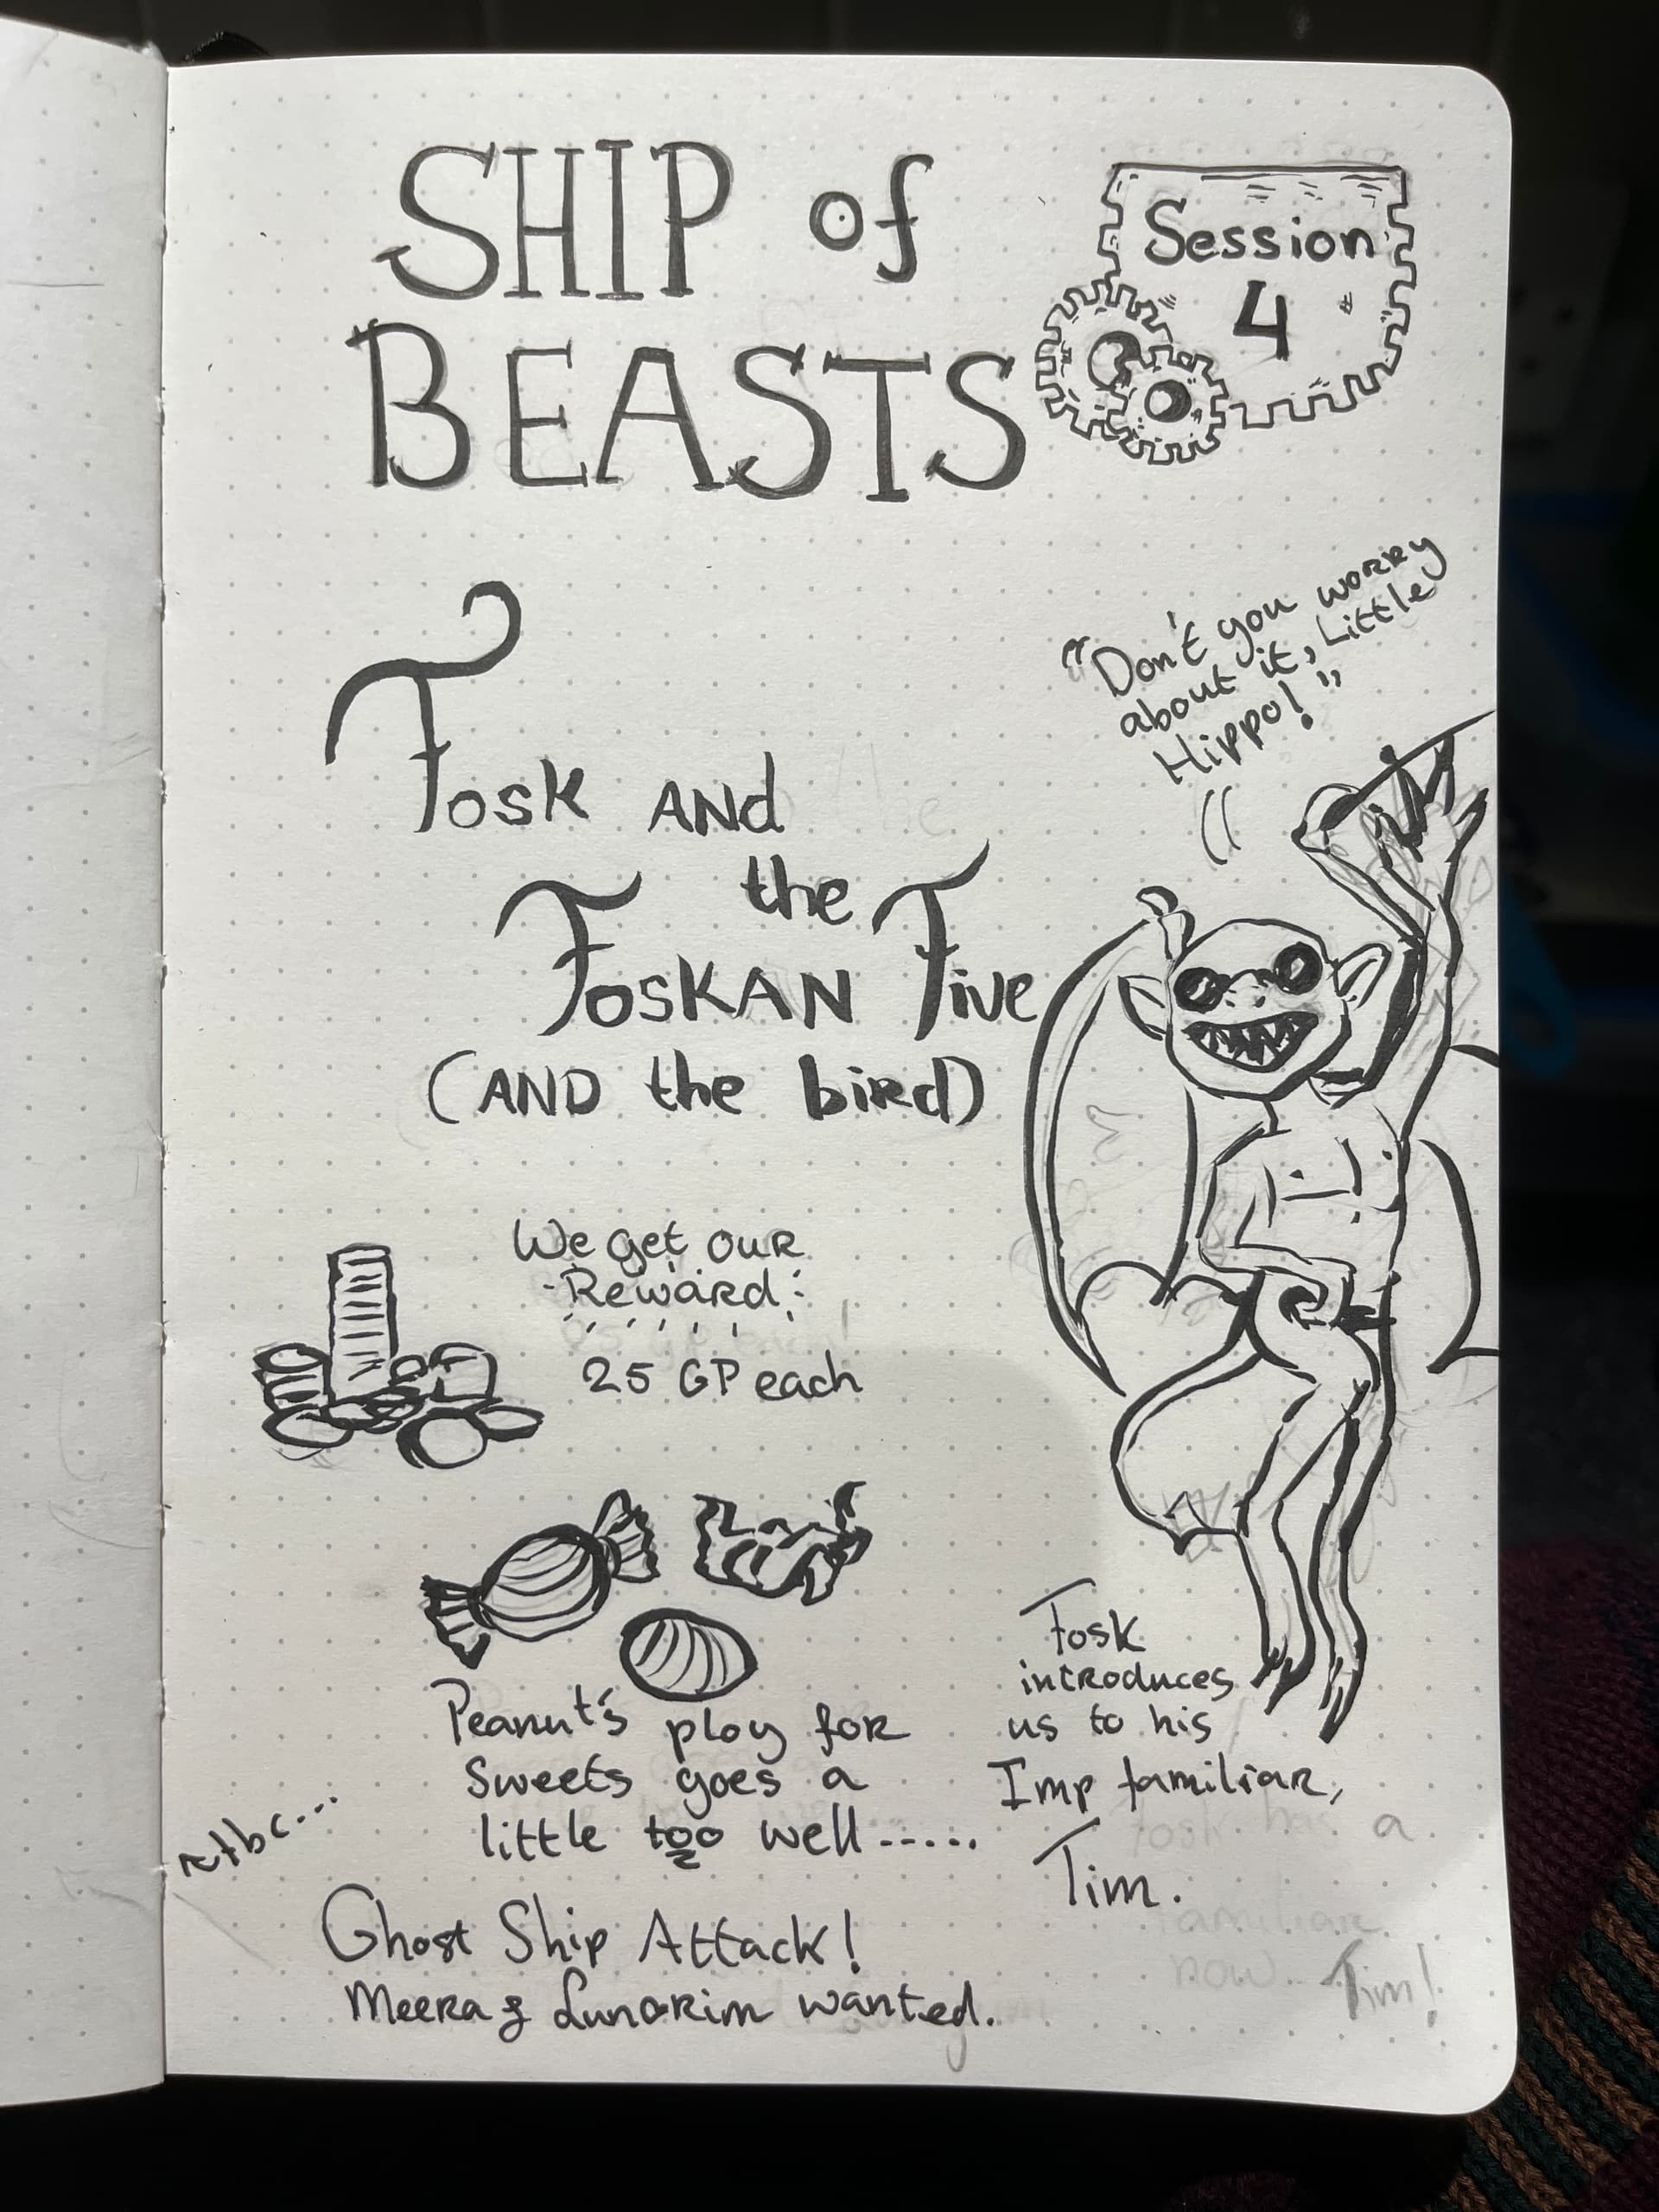 SHIP of
BEASTS
Session
4
"Don't you worry
about it, Little
Hippo!"
Tosk AND
the
Toskan Five
(AND the bird)
We get our
Reward
25 GP each
Peanut's ploy for
Sweets goes a
little too well.....
Tosk
introduces
us to his
Imp familiar,
Tim.
tbc...
Ghost Ship Attack!
Meera & Lunarim wanted.
Tosk has a
familiar
now
Tim!